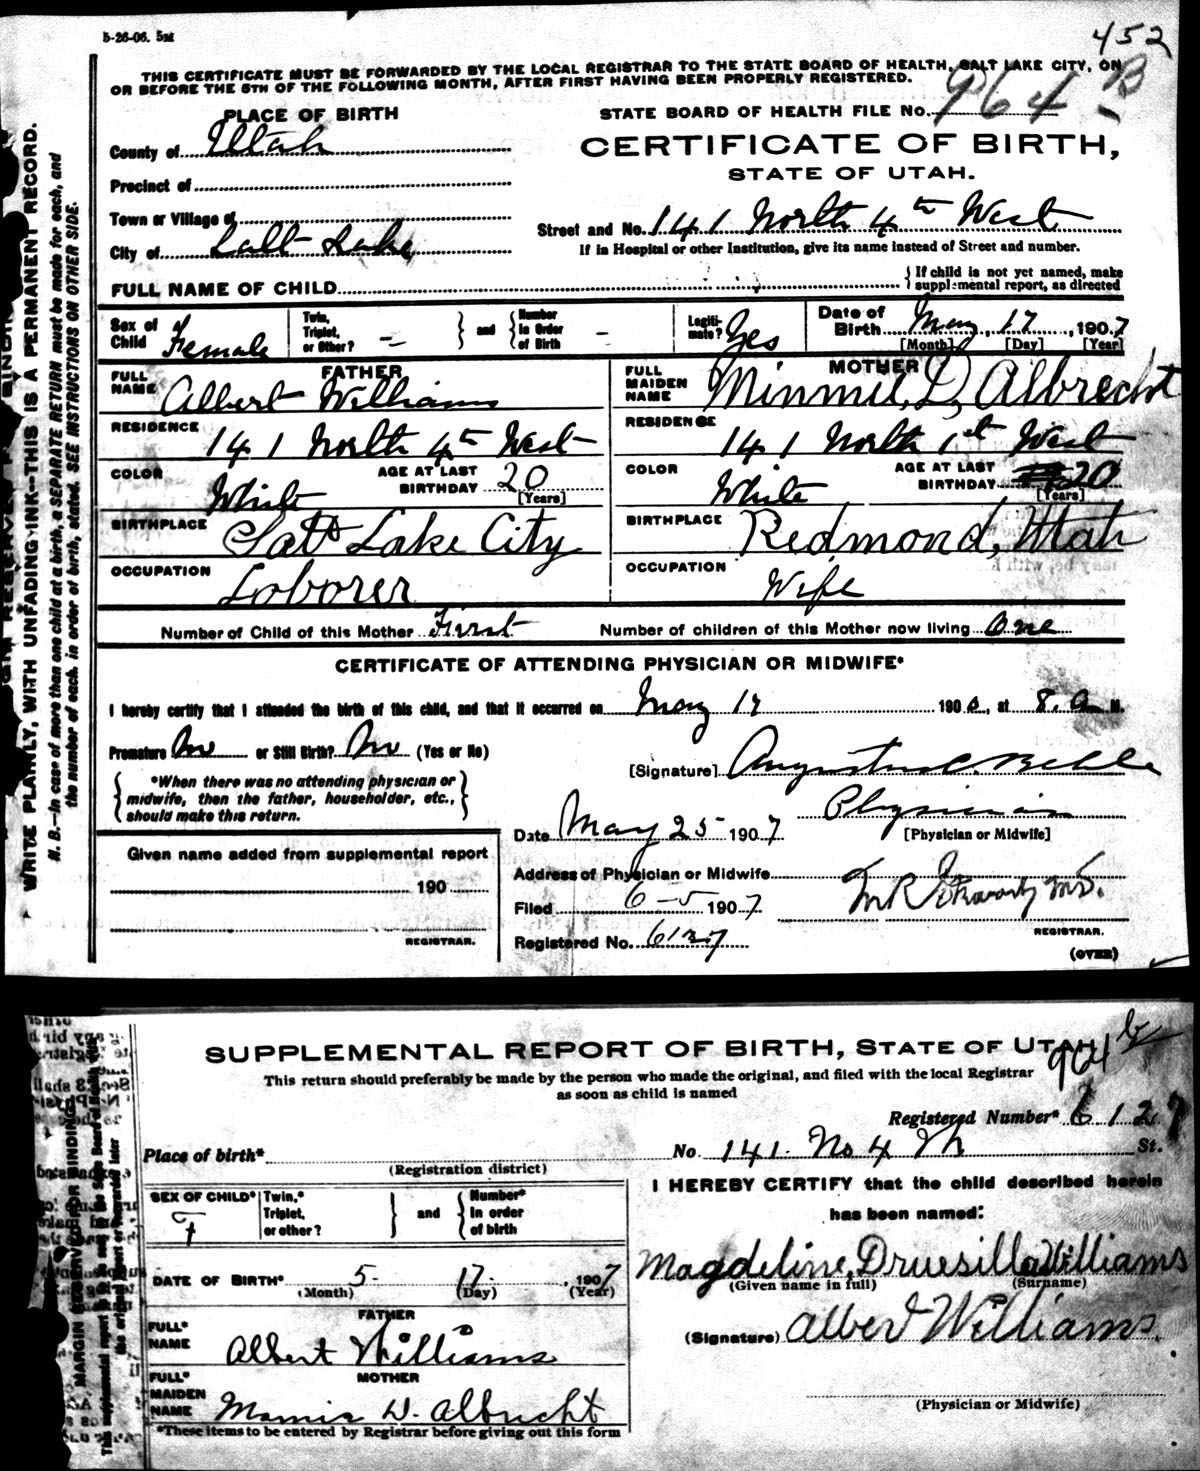 5-26-06. 5M
452
THIS CERTIFICATE MUST BE FORWARDED BY THE LOCAL REGISTRAR TO THE STATE BOARD OF HEALTH, SALT LAKE CITY, ON
OR BEFORE THE 5TH OF THE FOLLOWING MONTH, AFTER FIRST HAVING BEEN PROPERLY REGISTERED.
PLACE OF BIRTH
STATE BOARD OF HEALTH FILE No. 964 B
County of Utah
CERTIFICATE OF BIRTH,
STATE OF UTAH.
Precinct of
Town or Village of
Street and No. 141 North 4th West
City of Salt Lake
If in Hospital or other Institution, give its name instead of Street and number.
FULL NAME OF CHILD
If child is not yet named, make
supplemental report, as directed
Sex of Child Female
Twin, Triplet, or Other? -
and
Number in Order of Birth -
Legitimate? Yes
Date of Birth May 17, 1907
[Month] [Day] [Year]
FATHER
MOTHER
FULL NAME Albert Williams
FULL MAIDEN NAME Minnie D. Albrecht
RESIDENCE 141 North 4th West
RESIDENCE 141 North 1st West
COLOR White AGE AT LAST BIRTHDAY 20 [Years]
COLOR White AGE AT LAST BIRTHDAY 20 [Years]
BIRTHPLACE Salt Lake City
BIRTHPLACE Redmond, Utah
OCCUPATION Laborer
OCCUPATION Wife
Number of Child of this Mother First Number of children of this Mother now living One
CERTIFICATE OF ATTENDING PHYSICIAN OR MIDWIFE*
I hereby certify that I attended the birth of this child, and that it occurred on May 17 190 , at 8. a M.
Premature No or Still Birth? No (Yes or No)
[Signature] Augustus C. Behle
*When there was no attending physician or
midwife, then the father, householder, etc.,
should make this return.
Physician
[Physician or Midwife]
Date May 25 1907
Given name added from supplemental report
190
REGISTRAR.
Address of Physician or Midwife
Filed 6-5 1907
M.D.
REGISTRAR.
Registered No. 6127
(OVER)
WRITE PLAINLY, WITH UNFADING INK—THIS IS A PERMANENT RECORD.
N. B.—In case of more than one child at a birth, a SEPARATE RETURN must be made for each, and
the number of each, in order of birth, stated. SEE INSTRUCTIONS ON OTHER SIDE.
SUPPLEMENTAL REPORT OF BIRTH, STATE OF UTAH
964 b
This return should preferably be made by the person who made the original, and filed with the local Registrar
as soon as child is named
Registered Number* 6127
Place of birth*
(Registration district)
No. 141 No 4 W St.
SEX OF CHILD* F
Twin,* Triplet, or other?
and
Number* In order of birth
I HEREBY CERTIFY that the child described herein
has been named:
Magdeline, Druesilla Williams
(Given name in full) (Surname)
DATE OF BIRTH* 5 17 , 1907
(Month) (Day) (Year)
(Signature) Albert Williams.
FATHER
FULL* NAME Albert Williams
MOTHER
FULL* MAIDEN NAME D. Albrecht
(Physician or Midwife)
*These items to be entered by Registrar before giving out this form
MARGIN RESERVED FOR BINDING